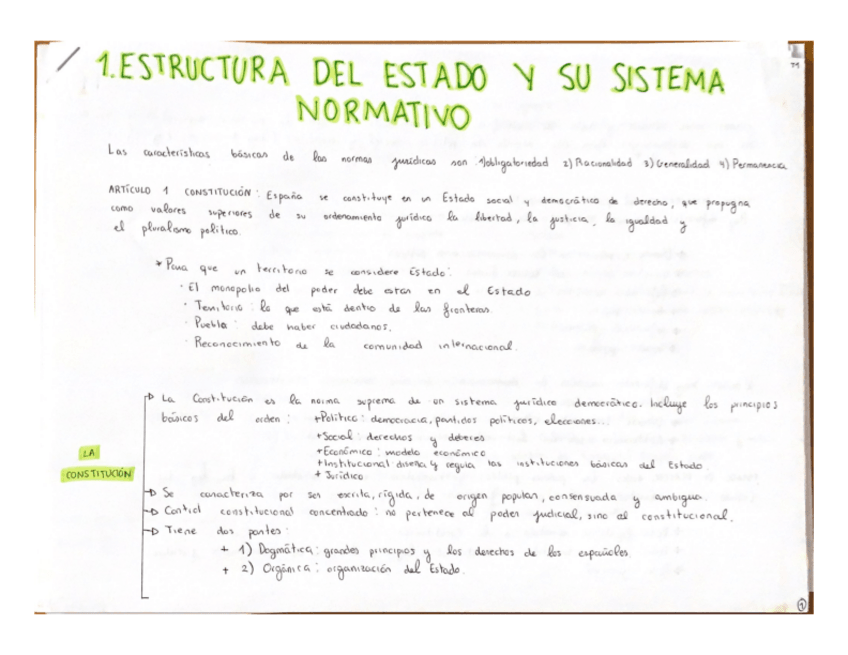 1. ESTRUCTURA DEL ESTADO Y SU SISTEMA
NORMATIVO
T1
Las características básicas de las normas jurídicas son 1) obligatoriedad 2) Racionalidad 3) Generalidad 4) Permanencia
ARTÍCULO 1 CONSTITUCIÓN: España se constituye en un Estado social y democrático de derecho, que propugna
como valores superiores de su ordenamiento jurídico la libertad, la justicia, la igualdad y
el pluralismo político.
* Para que un territorio se considere Estado:
· El monopolio del poder debe estar en el Estado
· Territorio: lo que está dentro de las fronteras.
· Puebla: debe haber ciudadanos.
· Reconocimiento de la comunidad internacional.
LA
CONSTITUCIÓN
→ La Constitución es la norma suprema de un sistema jurídico democrático. Incluye los principios
básicos del orden: +Político: democracia, partidos políticos, elecciones...
+Social: derechos y deberes
+Económico: modelo económico
+Institucional diseña y regula las instituciones básicas del Estado.
+ Jurídico
→ Se caracteriza por ser escrita, rígida, de origen popular, consensuada y ambigua.
→ Control constitucional concentrado: no pertenece al poder judicial, sino al constitucional.
→ Tiene dos partes:
+ 1) Dogmática: grandes principios y los derechos de los españoles
+ 2) Orgánica: organización del Estado.
1